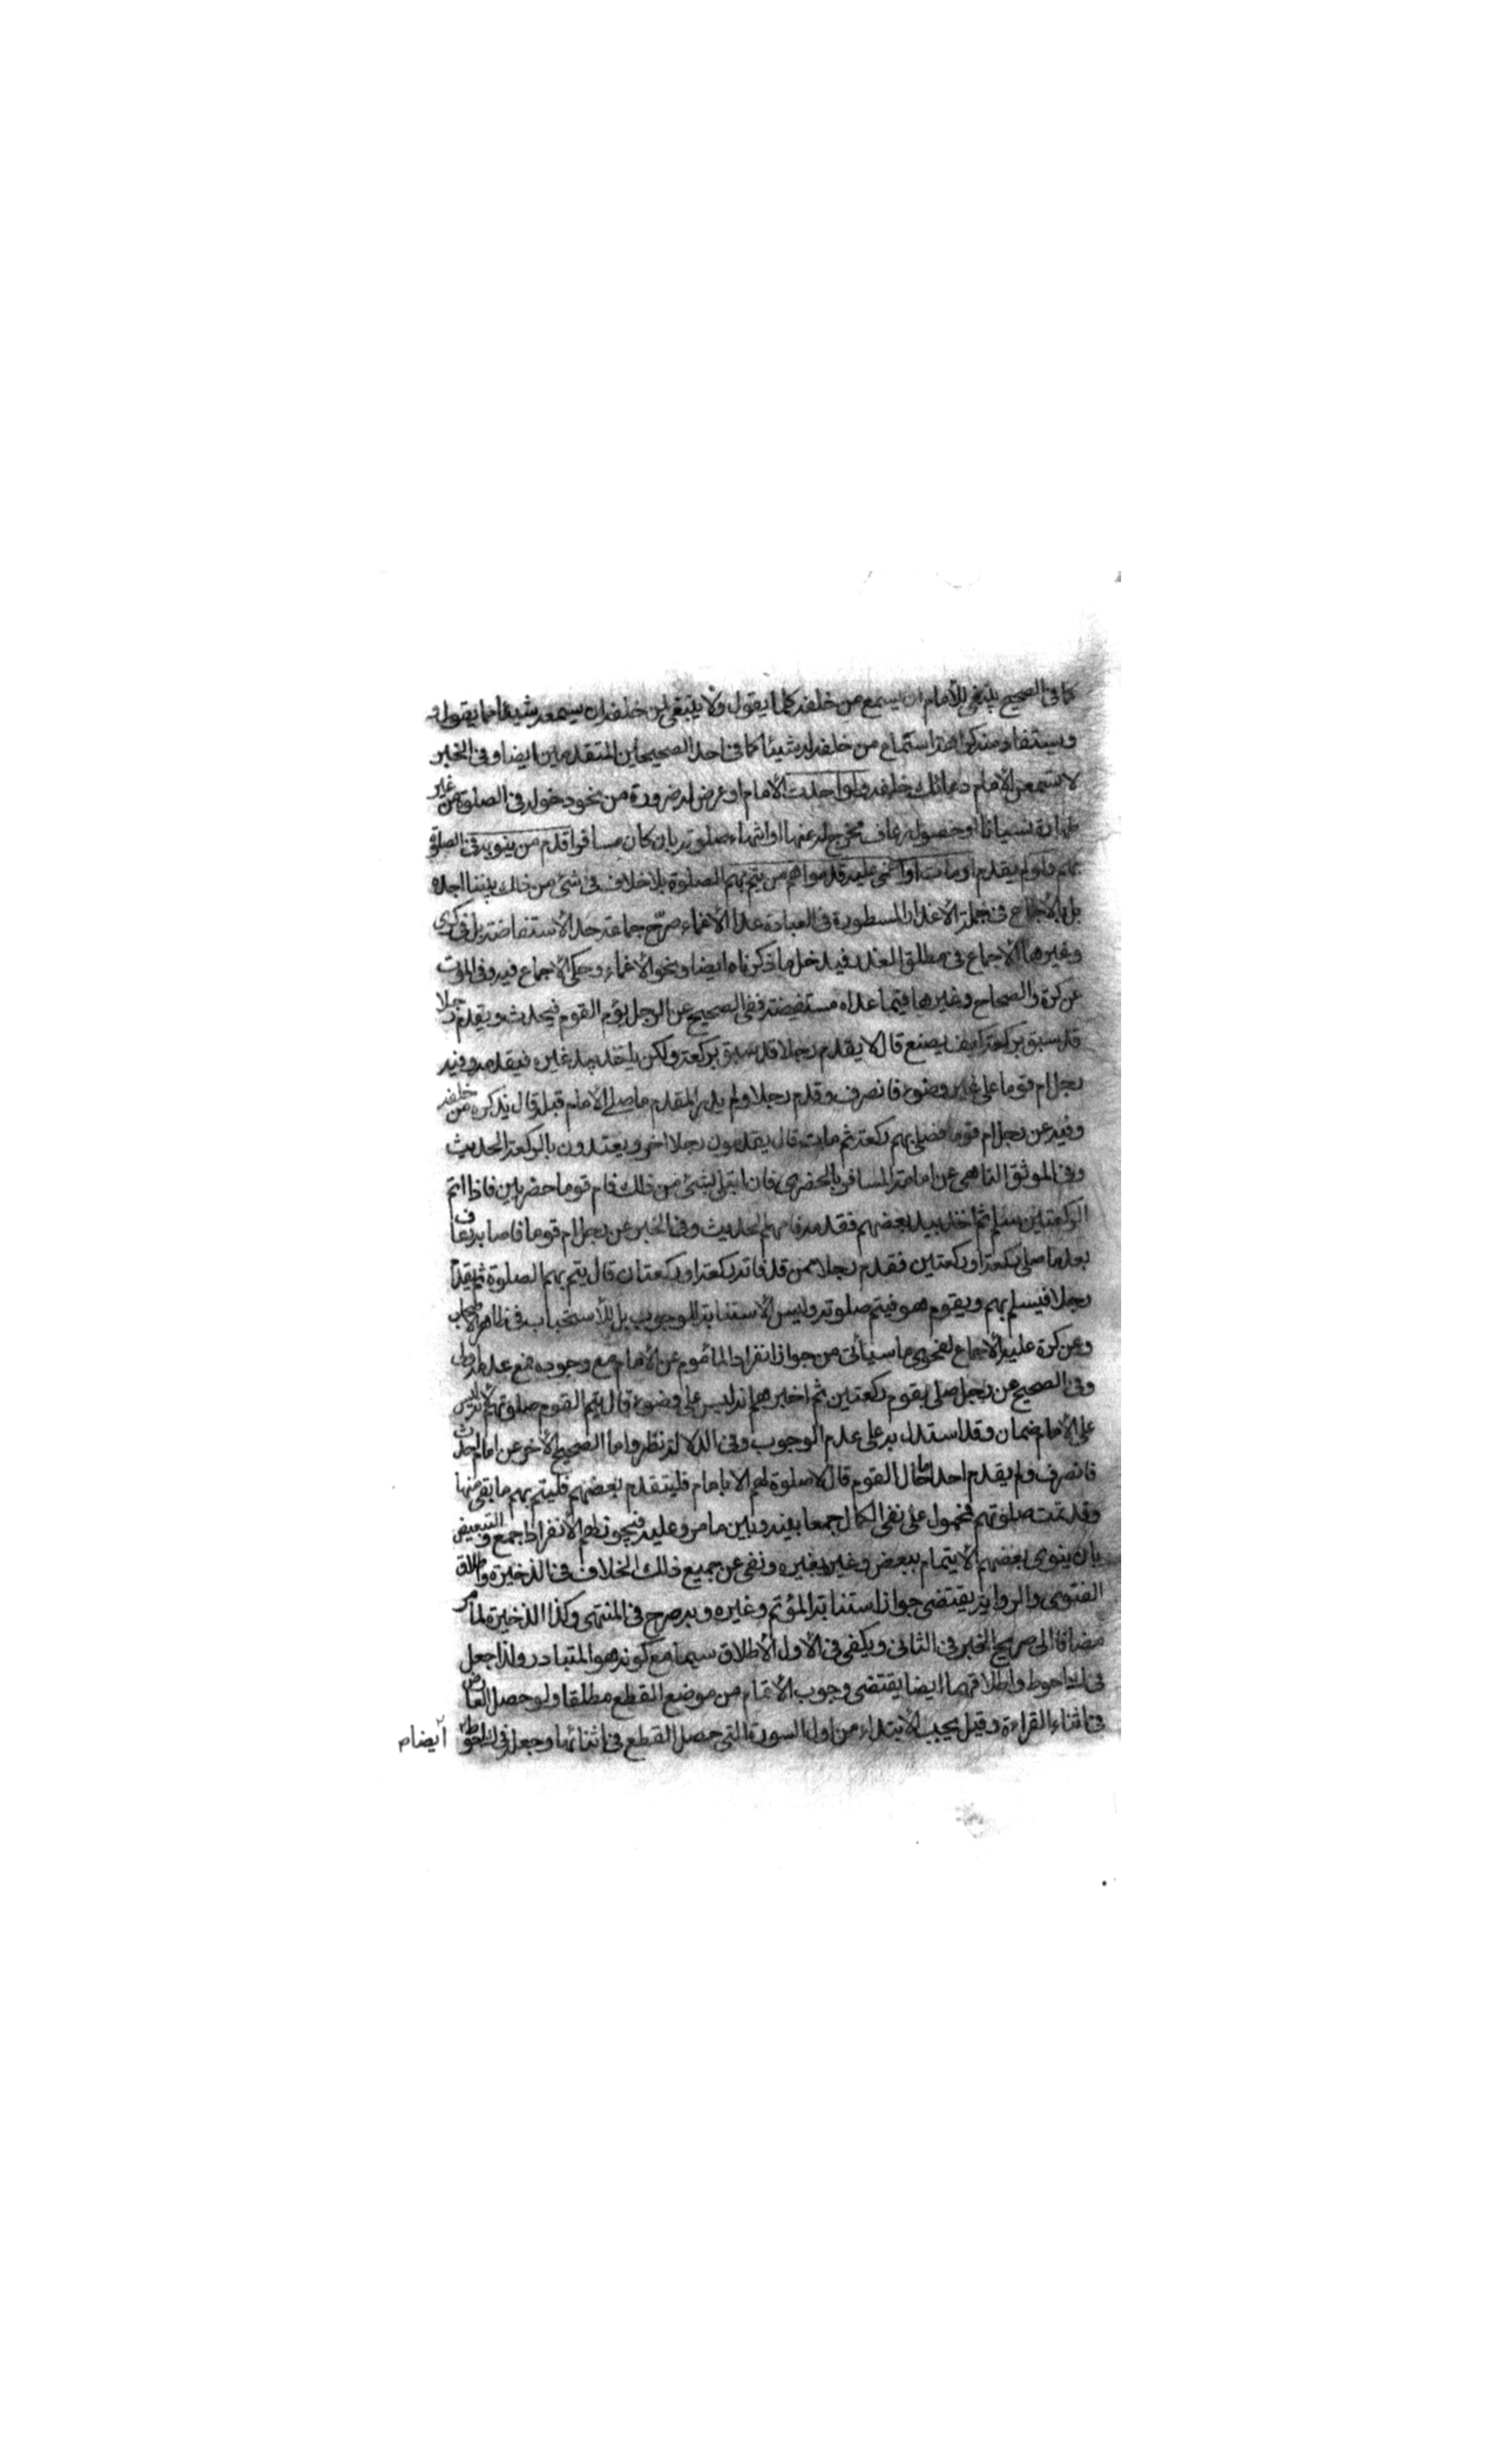 كما في الصحيح ينبغي للأمام ان يسمع من خلفه كلما يقول ولا ينبغي لمن خلفه ان يسمعه شيئا مما يقول
ويستفاد منه كراهة استماع من خلفه له شيئا كما في احد الصحيحين المتقدمين ايضا وفي الخبر
لا تسمعن الأمام دعائك خلفه ولو احدث الأمام او عرض له ضرورة من نحو دخوله في الصلوة من غير
طهارة نسيانا او حصول رعاف مخرج له عنها او انتهاء صلوته بان كان مسافرا قدم من ينوبه في الصلوة
بهم ولو لم يقدم او مات او اغمي عليه قدموا هم من يتم بهم الصلوة بلا خلاف في شئ من ذلك بيننا اجده
بل بالأجماع في جملة الاعذار المسطورة في العبادة عدا الأغماء صرّح جماعة حد الأستفاضة بل في كرى
وغيرها الأجماع في مطلق العذر فيدخل ما ذكرناه ايضا ونحو الأغماء وحكي الأجماع فيه وفي الموت
عن كرة والصحاح وغيرها فيما عداه مستفيضة ففي الصحيح عن الرجل يؤم القوم فيحدث ويقدم رجلا
قد سبق بركعة كيف يصنع قال لا يقدم رجلا قد سبق بركعة ولكن ياخذ بيد غيره فيقدمه وفيه
رجل ام قوما على غير وضوء فانصرف وقدم رجلا ولم يدر المقدم ما صلى الأمام قبله قال يذكره من خلفه
وفيه عن رجل ام قوما فصلى بهم ركعة ثم مات قال يقدمون رجلا اخر ويعتدون بالركعة الحديث
وفي الموثق الناهي عن امامة المسافر بالحضري فان ابتلى بشئ من ذلك فام قوما حضريين فاذا اتم
الركعتين سلم ثم اخذ بيد بعضهم فقدمه فامهم الحديث وفي الخبر عن رجل ام قوما فاصابه رعاف
بعد ما صلى ركعة او ركعتين فقدم رجلا ممن قد فاته ركعة او ركعتان قال يتم بهم الصلوة ثم يقدم
رجلا فيسلم بهم ويقوم هو فيتم صلوته وليس الاستنابة للوجوب بل للأستحباب في ظاهر الاصحاب
وعن كرة عليه الأجماع لفحوى ما سيأتي من جواز انفراد المأموم عن الأمام مع وجوده فمع عدمه اولى
وفي الصحيح عن رجل صلى بقوم ركعتين ثم اخبرهم انه ليس على وضوء قال يتم القوم صلوتهم فانه ليس
على الأمام ضمان وقد استدل به على عدم الوجوب وفي الدلالة نظر واما الصحيح الأخر عن امام احدث
فانصرف ولم يقدم احدا ما حال القوم قال لا صلوة لهم الا بامام فليتقدم بعضهم فليتم بهم ما بقي منها
وقد تمت صلوتهم فمحمول على نفي الكمال جمعا بينه وبين ما مر وعليه فيجوز لهم الأنفراد اجمع والتبعيض
بان ينوى بعضهم الايتمام ببعض وغيره بغيره ونفى عن جميع ذلك الخلاف في الذخيرة واطلاق
الفتوى والرواية يقتضي جواز استنابة المؤتم وغيره وبه صرح في المنتهى وكذا الذخيرة لما مر
مضافا الى صريح الخبر في الثاني ويكفى في الأول الأطلاق سيما مع كونه هو المتبادر ولذا جعل
في احوط واطلاقهما ايضا يقتضى وجوب الأتمام من موضع القطع مطلقا ولو حصل العارض
في اثناء القراءة وقيل يجب الأبتداء من اول السورة التي حصل القطع في اثنائها وجعل في احوط
ايضا